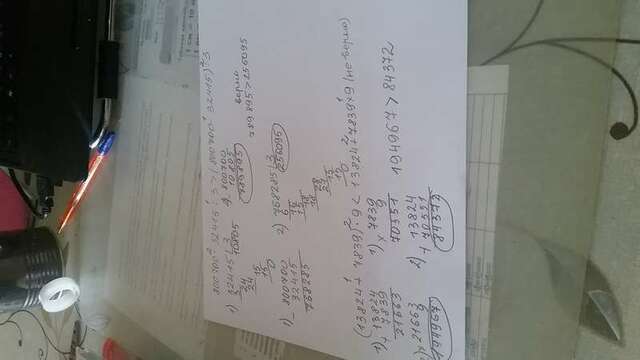 800700 - 32415 : 3 > (800700 - 32415) : 3
1) 32415 | 3
10805
24
24
15
15
0
2) 800700
10805
789895
верно
789895 > 256095
1) 800700
32415
768285
2) 768285 | 3
256095
6
16
15
18
18
28
27
15
15
0
(13824 + 7839) · 9 < 13824 + 7839 × 9 (не верно)
1) 13824
+ 7839
21663
1) 7839
× 9
70551
194967 > 84372
2) × 21663
9
194967
2) 13824
+ 70551
84372